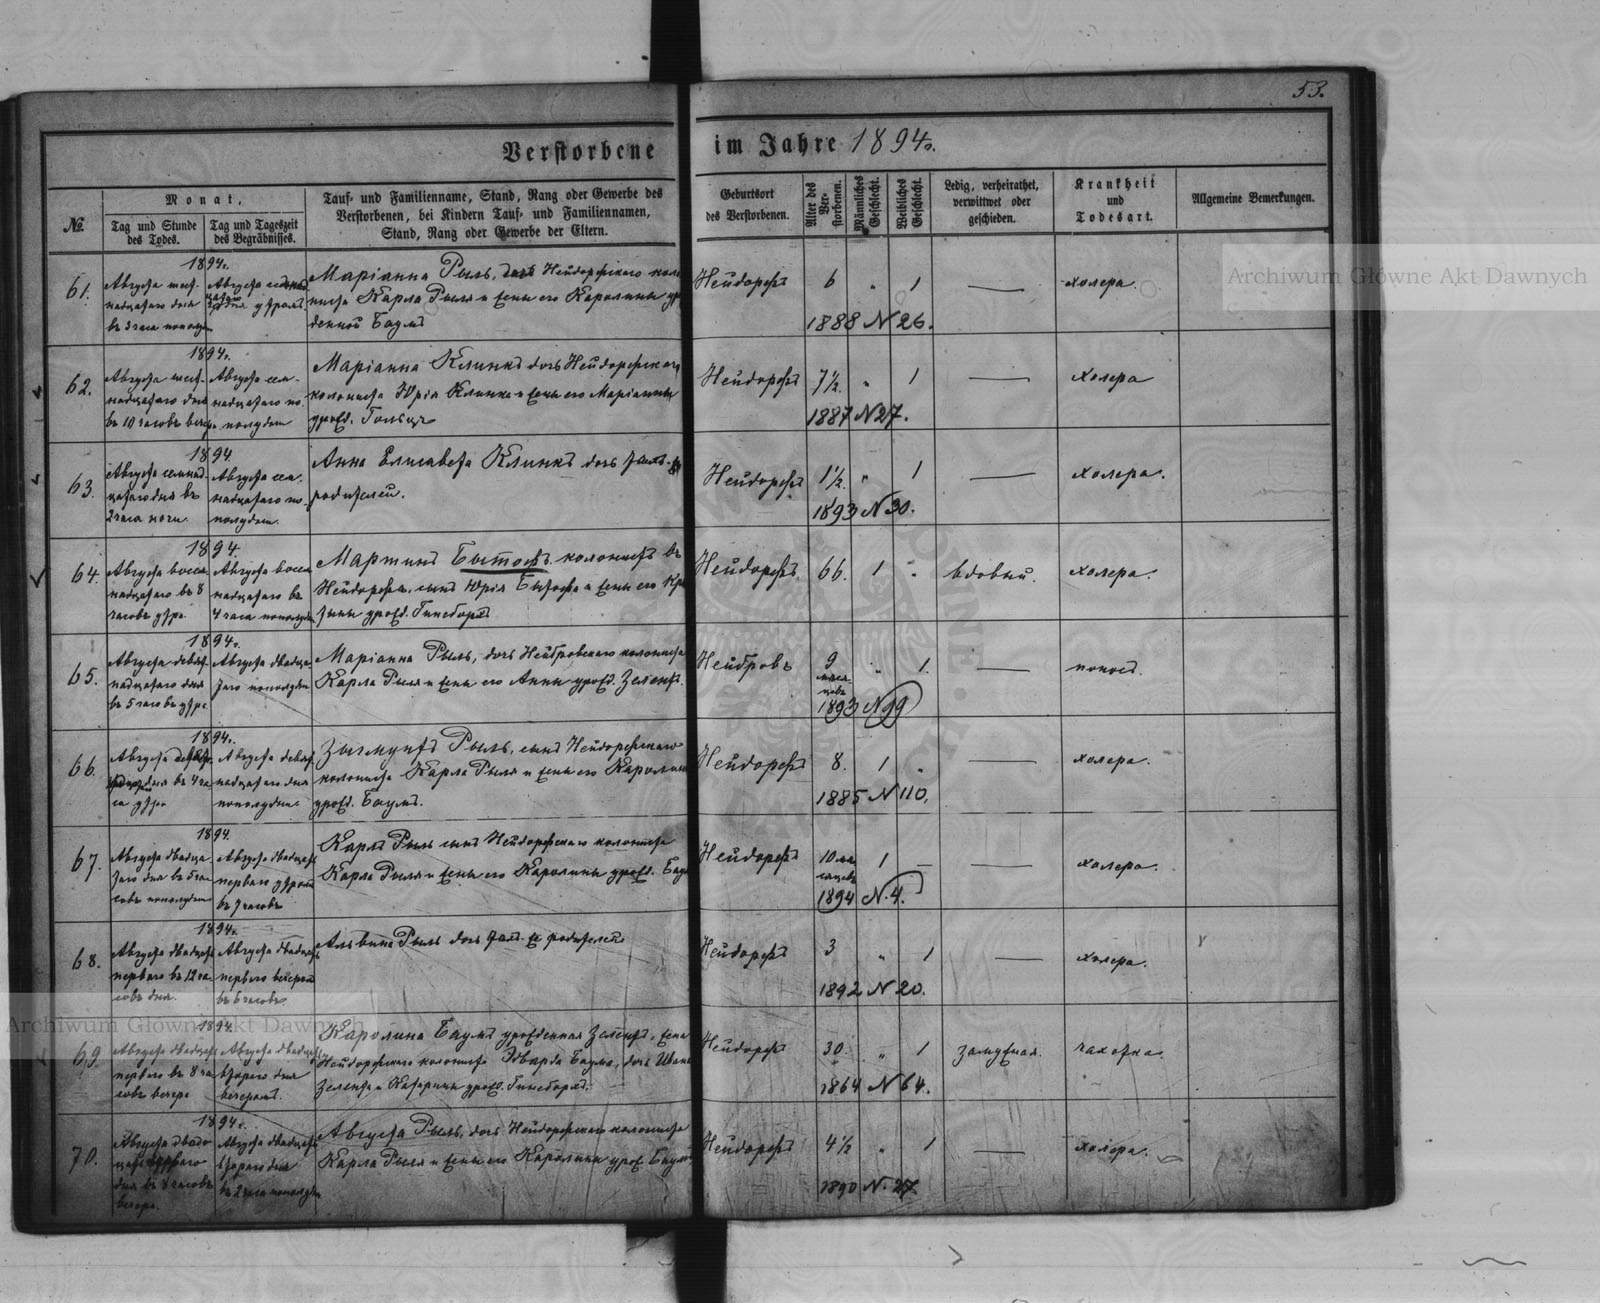 53.
Verstorbene im Jahre 1894г.
№
Monat,
Tag und Stunde des Todes.
Tag und Tageszeit des Begräbnisses.
Tauf- und Familienname, Stand, Rang oder Gewerbe des
Verstorbenen, bei Kindern Tauf- und Familiennamen,
Stand, Rang oder Gewerbe der Eltern.
Geburtsort
des Verstorbenen.
Alter des Verstorbenen.
Männliches Geschlecht.
Weibliches Geschlecht.
Ledig, verheirathet,
verwittwet oder
geschieden.
Krankheit
und
Todesart.
Allgemeine Bemerkungen.
Archiwum Główne Akt Dawnych
61.
1894г.
Августа шест-
надцатаго дня
въ 3 часа пополуд.
Августа
утромъ
Маріанна Рыль, дочь Нейдорфскаго коло
ниста Карла Рыля и жены его Каролины уро
жденной Баумъ
Нейдорфъ 6 „ 1 — холера.
1888 N 26.
62.
1894г.
Августа шест-
надцатаго дня
въ 10 часовъ вечер.
Августа сем-
надцатаго по-
полудни
Маріанна Клинкъ дочь Нейдорфскаго
колониста Юрія Клинка и жены его Маріанны
урожд. Гольцъ
Нейдорфъ 7½ „ 1 — холера
1887 N 27.
63.
1894.
Августа семнад-
цатаго дня въ
2 часа ночи.
Августа сем-
надцатаго по-
полудни.
Анна Елисавета Клинкъ дочь
родителей.
Нейдорфъ 1½ „ 1 — холера.
1893 N 30.
64.
1894.
Августа восем-
надцатаго въ 8
часовъ утра.
Августа восем-
надцатаго въ
4 часа пополудни
Мартинъ Бытофъ колонистъ въ
Нейдорфъ, сынъ Юрія Бытофа и жены его
урожд. Гинсборхъ
Нейдорфъ. 66. 1 „ вдовый. холера.
65.
1894г.
Августа девят-
надцатаго дня
въ 5 часовъ утра.
Августа двадца-
таго пополудни
Маріанна Рыль, дочь Нейбровскаго колониста
Карла Рыля и жены его Анны урожд. Зелентъ.
Нейбровъ 9 меся-
цевъ „ 1. — поносъ.
1893 N 99
66.
1894г.
Августа
дня въ 4 ча
са утра.
Августа девят-
надцатаго дня
пополудни.
Зыгмунтъ Рыль, сынъ Нейдорфскаго
колониста Карла Рыля и жены его Каролины
урожд. Баумъ.
Нейдорфъ 8. 1 „ — холера.
1885 N 110.
67.
1894
Августа двадца
таго дня въ 5 ча-
совъ пополудни
Августа двадцать
перваго утромъ
въ 7 часовъ
Карлъ Рыль сынъ Нейдорфскаго колониста
Карла Рыля и жены его Каролины урожд. Баумъ
Нейдорфъ 10 ме
сяцевъ 1 — — холера.
1894 N. 4.
68.
1894г.
Августа двадцать
перваго въ 12 ча-
совъ дня.
Августа двадцать
перваго вечеромъ
въ 6 часовъ.
Альвина Рыль дочь родителей
Нейдорфъ 3 „ 1 — холера.
1892 N 20.
Archiwum Główne Akt Dawnych
69.
1894.
Августа двадцать
перваго въ 8 ча
совъ вечера
Августа двадцать
втораго дня
вечеромъ.
Каролина Баумъ урожденная Зелентъ, жена
Нейдорфскаго колониста Эдварда Баума, дочь Ивана
Зелента и Катарины урожд. Гинсборхъ.
Нейдорфъ 30. „ 1 замужная. чахотка.
1864 N 64.
70.
1894г.
Августа двад
цать втораго
дня въ 8 часовъ
вечера.
Августа двадцать
втораго дня
въ 2 часа пополудни
Августа Рыль, дочь Нейдорфскаго колониста
Карла Рыля и жены его Каролины урожд Баумъ
Нейдорфъ 4½ „ 1 — холера.
1890 N. 27.